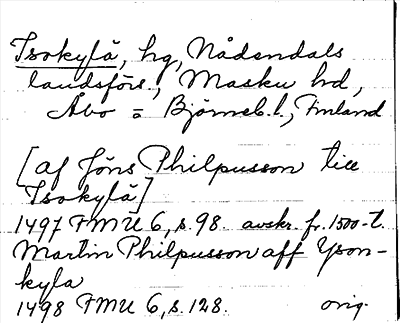 Isokylä, hg, Nådendals
landsförs., Masku hd,
Åbo = Björneb. l., Finland
[af Jöns Philpusson till
Isokylä]
1497 FMU 6, s. 98. avskr. fr. 1500-t.
Martin Philpusson aff Yson-
kyla
1498 FMU 6, s. 128. orig.